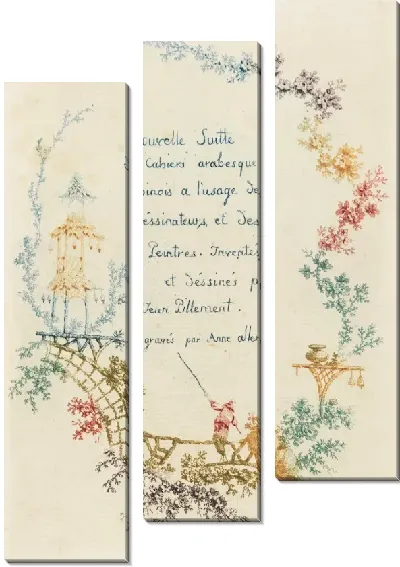 ouvelle Suitte
Cahiers arabesque
inois a l'usage de
essinateurs, et des
Peintres. Inventés
et déssinés p
Jean Pillement.
gravés par Anne alle